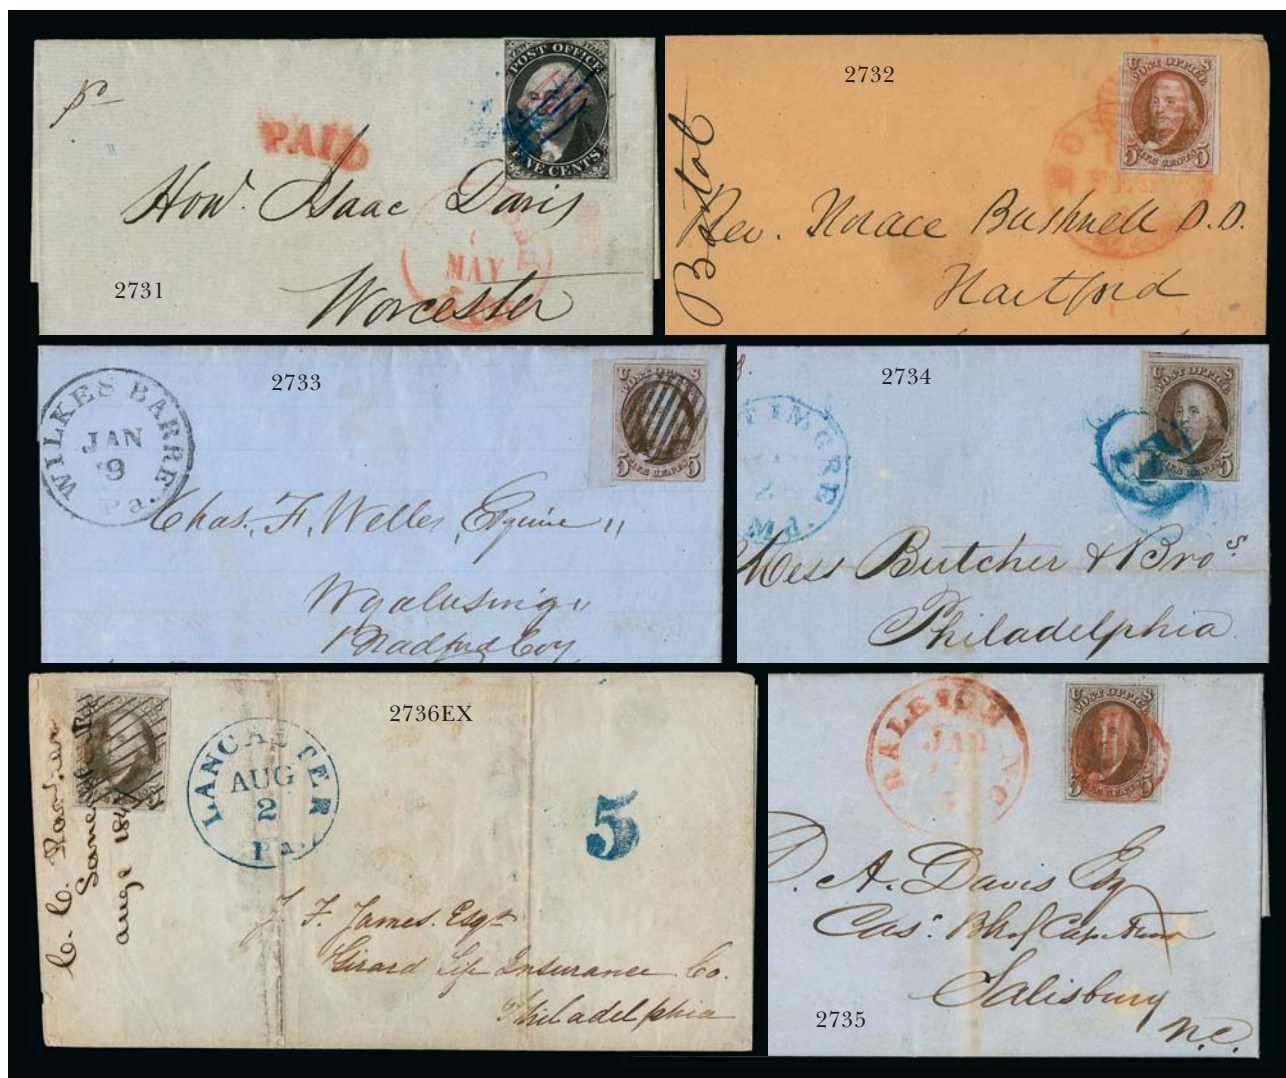 POST OFFICE
FIVE CENTS
PAID
Hon. Isaac Davis
Worcester
MAY
2731
2732
U S
POST OFFICE
5 FIVE CENTS 5
Bristol
Rev. Horace Bushnell D.D.
Hartford
WILKES BARRE
JAN
9
Pa.
2733
U S
POST OFFICE
5 FIVE CENTS 5
Chas. F. Welles, Esquire
Wyalusing
Bradford Coy
2734
U S
POST OFFICE
FIVE CENTS 5
TIMORE
Mess Butcher & Bros
Philadelphia
2736EX
LANCASTER
AUG
2
Pa.
5
J. F. James. Esqr
Girard Life Insurance Co.
Philadelphia
RALEIGH N.C
JAN
U S
POST OFFICE
5 FIVE CENTS 5
D. A. Davis Esq
Cas: Bk of Cape Fear
Salisbury
N.C.
2735